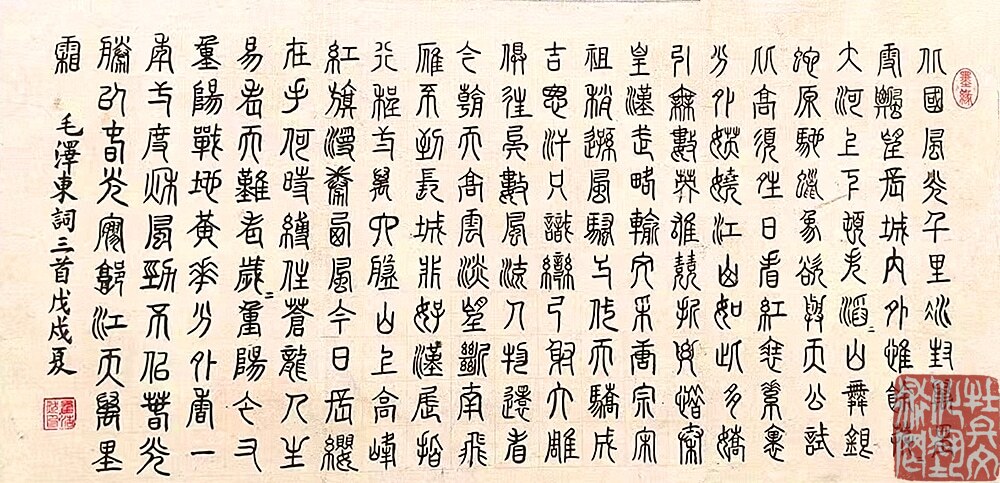 北國風光千里冰封萬里
雪飄望長城內外惟餘莽=
大河上下頓失滔=山舞銀
蛇原馳蠟象欲與天公試
比高須晴日看紅裝素裹
分外妖嬈江山如此多嬌
引無數英雄競折腰惜秦
皇漢武略輸文采唐宗宋
祖稍遜風騷一代天驕成
吉思汗只識彎弓射大雕
俱往矣數風流人物還看
今朝天高雲淡望斷南飛
雁不到長城非好漢屈指
行程二萬六盤山上高峰
紅旗漫卷西風今日長纓
在手何時縛住蒼龍人生
易老天難老歲=重陽今又
重陽戰地黃花分外香一
年一度秋風勁不似春光
勝似春光寥廓江天萬里
霜
毛澤東詞三首戊戌夏